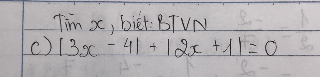 Tìm x, biết: BTVN
c) |3x - 4| + |2x + 1| = 0